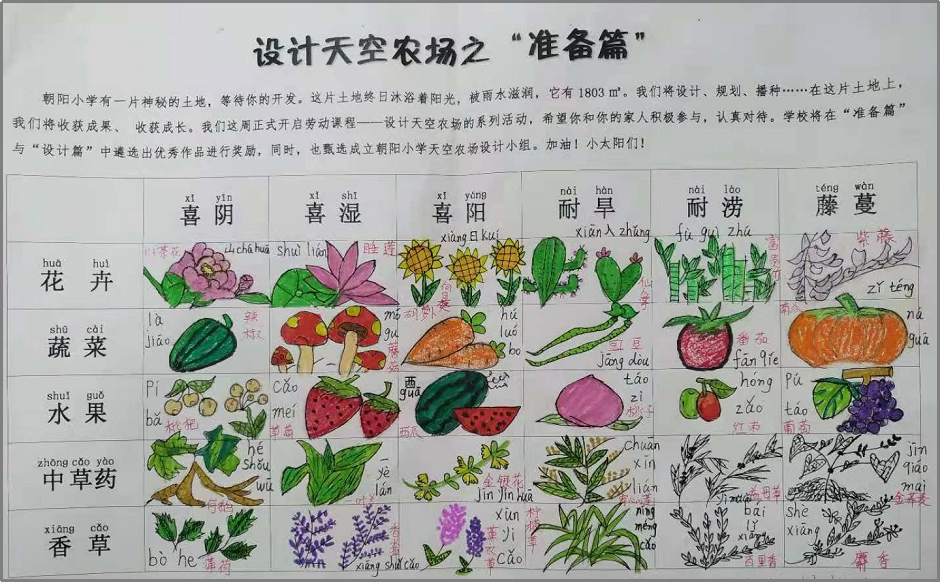 设计天空农场之“准备篇”
朝阳小学有一片神秘的土地，等待你的开发。这片土地终日沐浴着阳光，被雨水滋润，它有1803㎡。我们将设计、规划、播种……在这片土地上，
我们将收获成果、收获成长。我们这周正式开启劳动课程——设计天空农场的系列活动，希望你和你的家人积极参与，认真对待。学校将在“准备篇”
与“设计篇”中遴选出优秀作品进行奖励，同时，也甄选成立朝阳小学天空农场设计小组。加油！小太阳们！
xǐ yīn xǐ shī xǐ yáng nài hàn nài lào téng wàn
喜阴 喜湿 喜阳 耐旱 耐涝 藤蔓
huā huì
花卉
山茶花 shān chá huā shuì lián 睡莲 xiàng日kuí 向日葵 xiān人zhǎng 仙人掌 fù guì zhú 富贵竹 紫藤 zǐ téng
shū cài
蔬菜
là jiāo 辣椒 mó gu 蘑菇 胡萝卜 hú luó bo 豇豆 jāng dòu 番茄 fān qié 南瓜 nán guā
shuǐ guǒ
水果
pí bā 枇杷 cǎo méi 草莓 西 guā 西瓜 táo zi 桃子 hóng zǎo 红枣 pú táo 葡萄
zhōng cǎo yào
中草药
hé shǒu wū 何首乌 yè lán 金银花 jīn yín huā chuān xīn lián 穿心莲 jīn qiáo mài 金荞麦
xiāng cǎo
香草
bò he 薄荷 xiāng shuǐ cǎo xūn yī cǎo 薰衣草 柠檬草 níng méng cǎo bǎi lǐ xiāng 百里香 shè xiāng 麝香